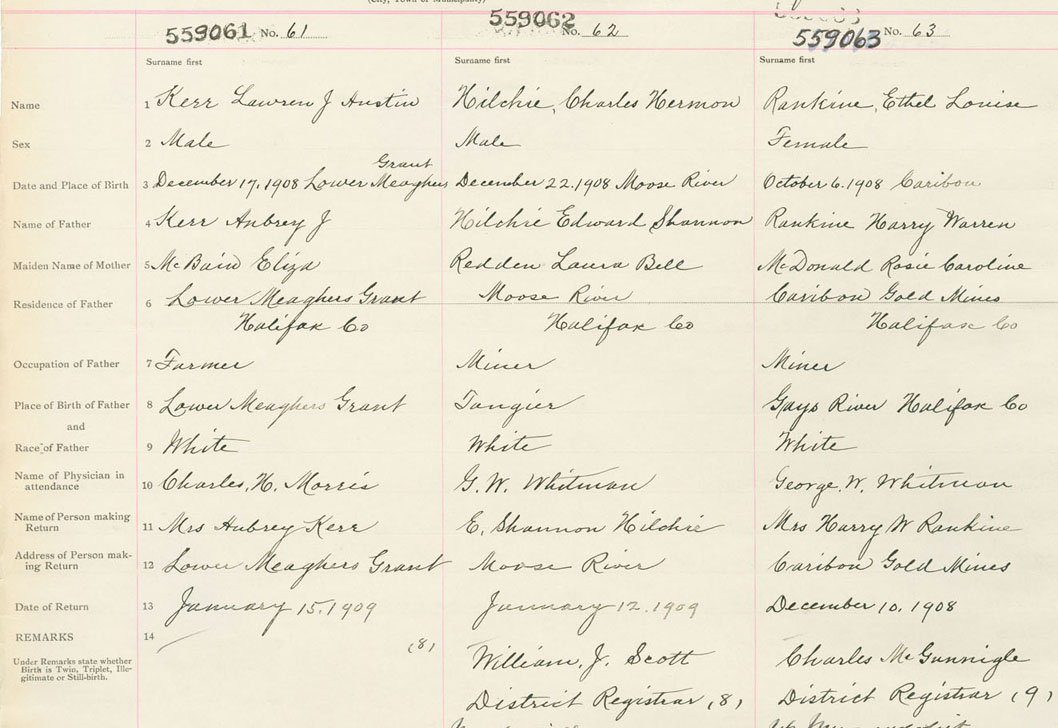 (City, Town or Municipality)
559061 No. 61 559062 No. 62 559063 No. 63
Surname first Surname first Surname first
Name 1 Kerr Lawren J Austin Hilchie, Charles Hermon Rankine, Ethel Louise
Sex 2 Male Male Female
Grant
Date and Place of Birth 3 December 17, 1908 Lower Meaghers December 22. 1908 Moose River October 6. 1908 Caribou
Name of Father 4 Kerr Aubrey J Hilchie Edward Shannon Rankine Harry Warren
Maiden Name of Mother 5 McBain Eliza Redden Laura Bell McDonald Rosie Caroline
Residence of Father 6 Lower Meaghers Grant Moose River Caribou Gold Mines
Halifax Co Halifax Co Halifax Co
Occupation of Father 7 Farmer Miner Miner
Place of Birth of Father 8 Lower Meaghers Grant Tangier Gays River Halifax Co
and
Race of Father 9 White White White
Name of Physician in
attendance 10 Charles, H. Morris G. W. Whitman George. W. Whitman
Name of Person making
Return 11 Mrs Aubrey Kerr E, Shannon Hilchie Mrs Harry W Rankine
Address of Person mak-
ing Return 12 Lower Meaghers Grant Moose River Caribou Gold Mines
Date of Return 13 January 15. 1909 January 12. 1909 December 10. 1908
REMARKS 14
(8)
Under Remarks state whether
Birth is Twin, Triplet, Ille-
gitimate or Still-birth.
William, J. Scott Charles McGunnigle
District Registrar (8) District Registrar (9)